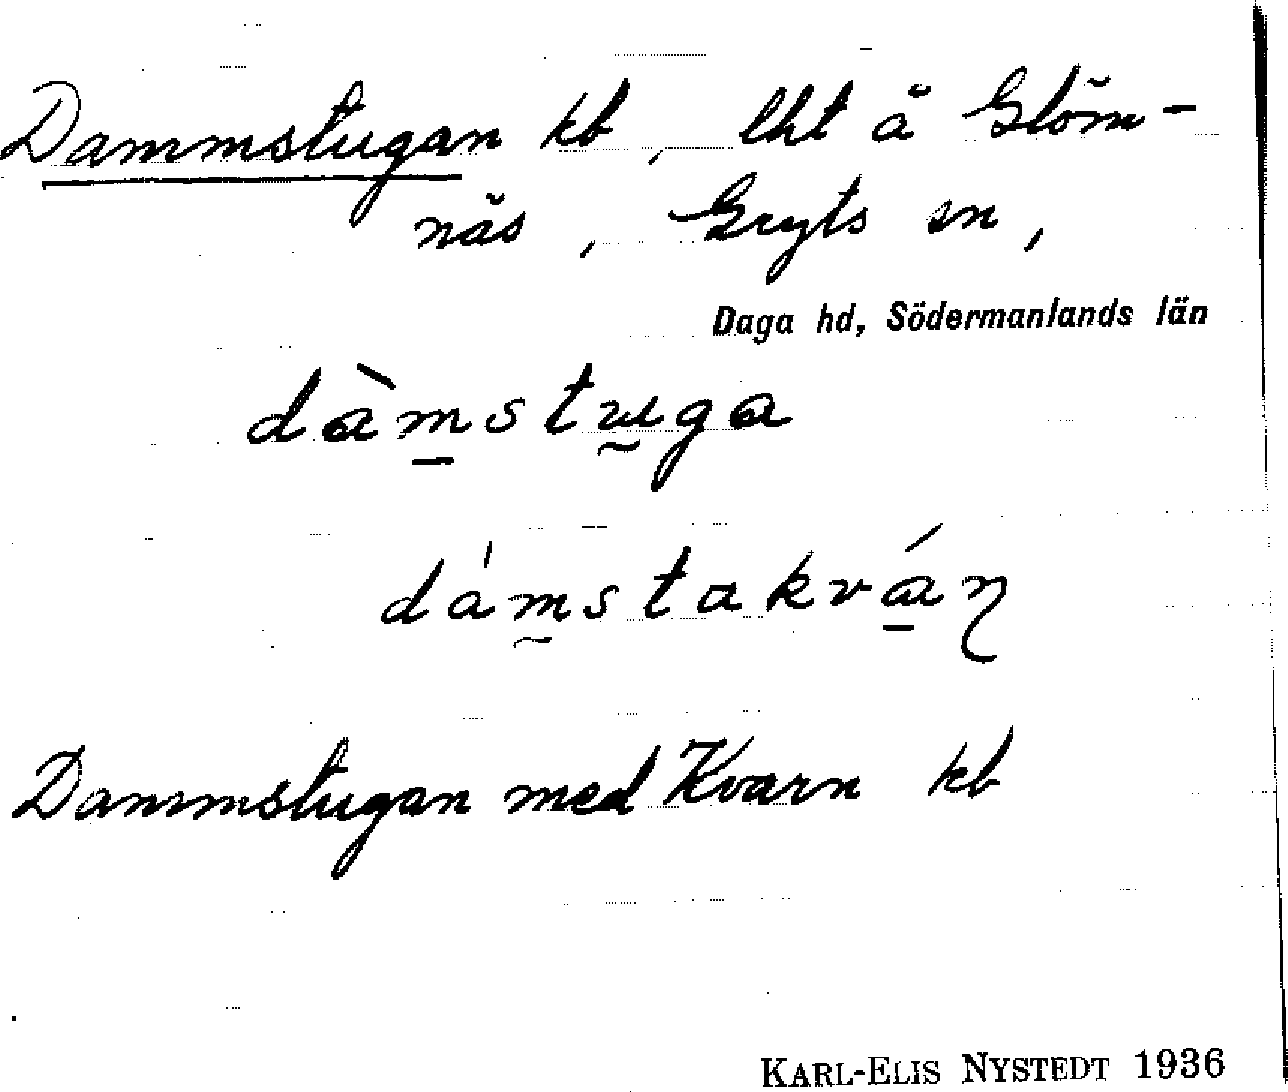 Dammstugan kb, lht å Glöm-
näs, Gryts sn,
Daga hd, Södermanlands län
dàmstuga
dámstakván
Dammstugan med Kvarn kb
KARL-ELIS NYSTEDT 1936